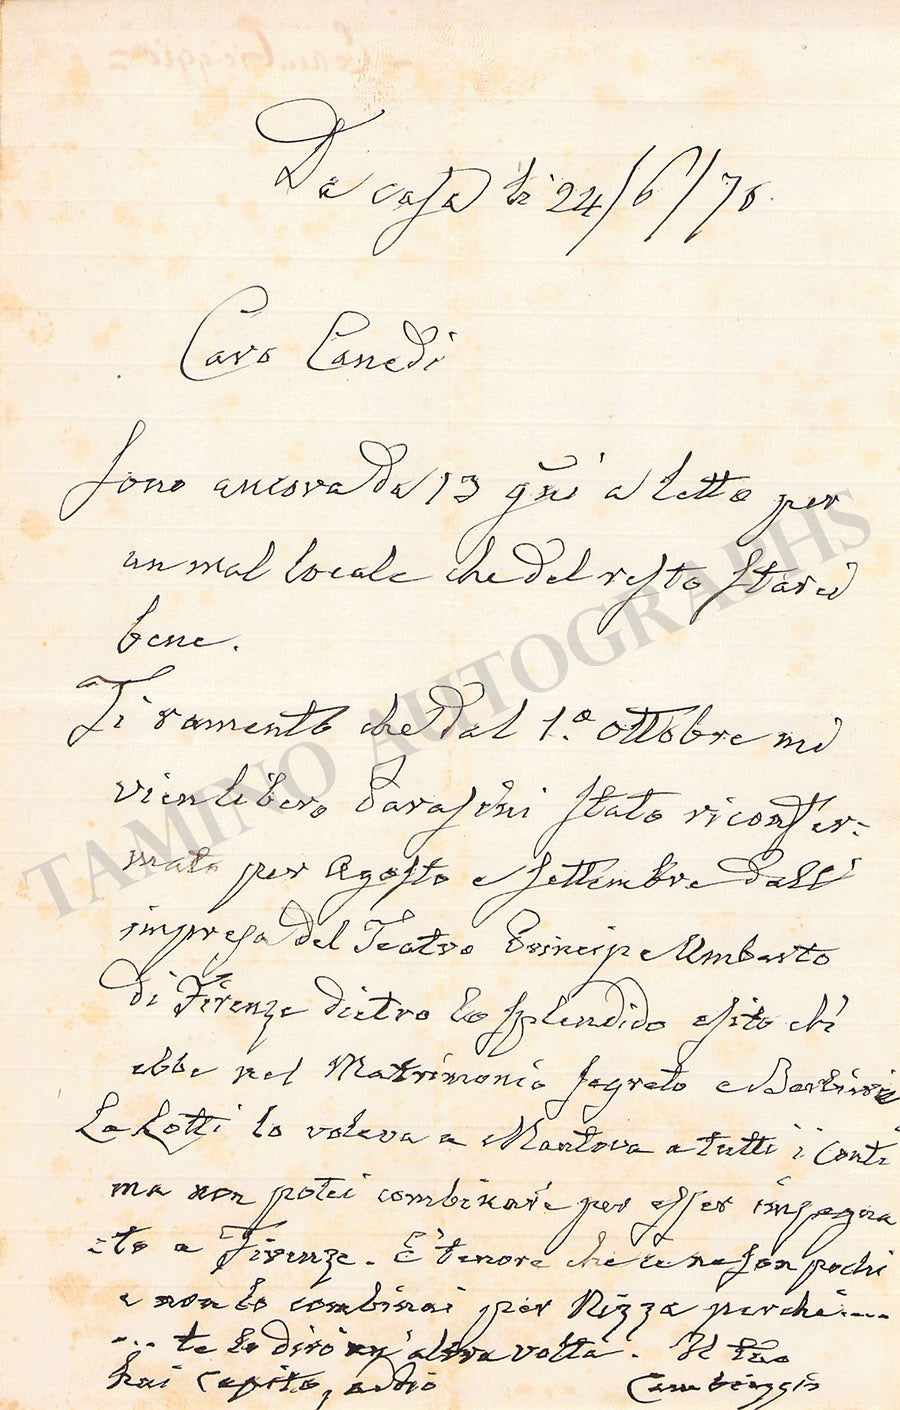 Da casa li 24/6/76.
Caro Canedi
Sono ancora da 13 gni a letto per
un mal locale che del resto starei
bene.
Ti ramento che dal 1.º ottobre mi
vien libero Parasini stato riconfer-
mato per Agosto e settembre dall'
impresa del Teatro Principe Umberto
di Firenze dietro lo splendido esito ch'
ebbe nel Matrimonio Segreto e Barbiere
La Lotti lo voleva a Mantova a tutti i conti
ma non potei combinare per esser impegna
ato a Firenze. È tenore che ce ne son pochi
e non lo combinai per Nizza perchè ....
... te lo dirò un'altra volta. Il tuo
hai capito, addio Cambiaggio
TAMINO AUTOGRAPHS